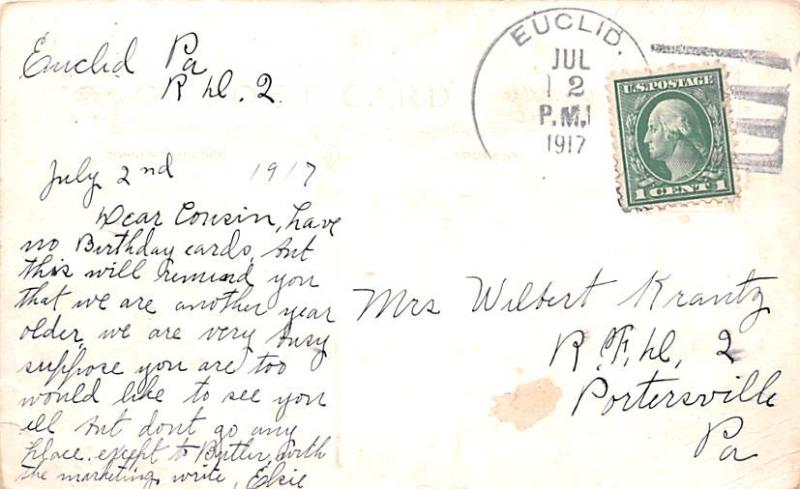 Euclid Pa
R D. 2.
July 2nd 1917
Dear Cousin, have
no Birthday cards, but
this will remind you
that we are another year
older, we are very busy
suppose you are too
would like to see you
all but dont go any
place. except to Butler, with
the marketing, write, Elsie
EUCLID.
JUL
2
P.M.
1917
U.S. POSTAGE
1 CENT 1
POST CARD
Mrs Wilbert Krantz
R. F. D. 2
Portersville
Pa